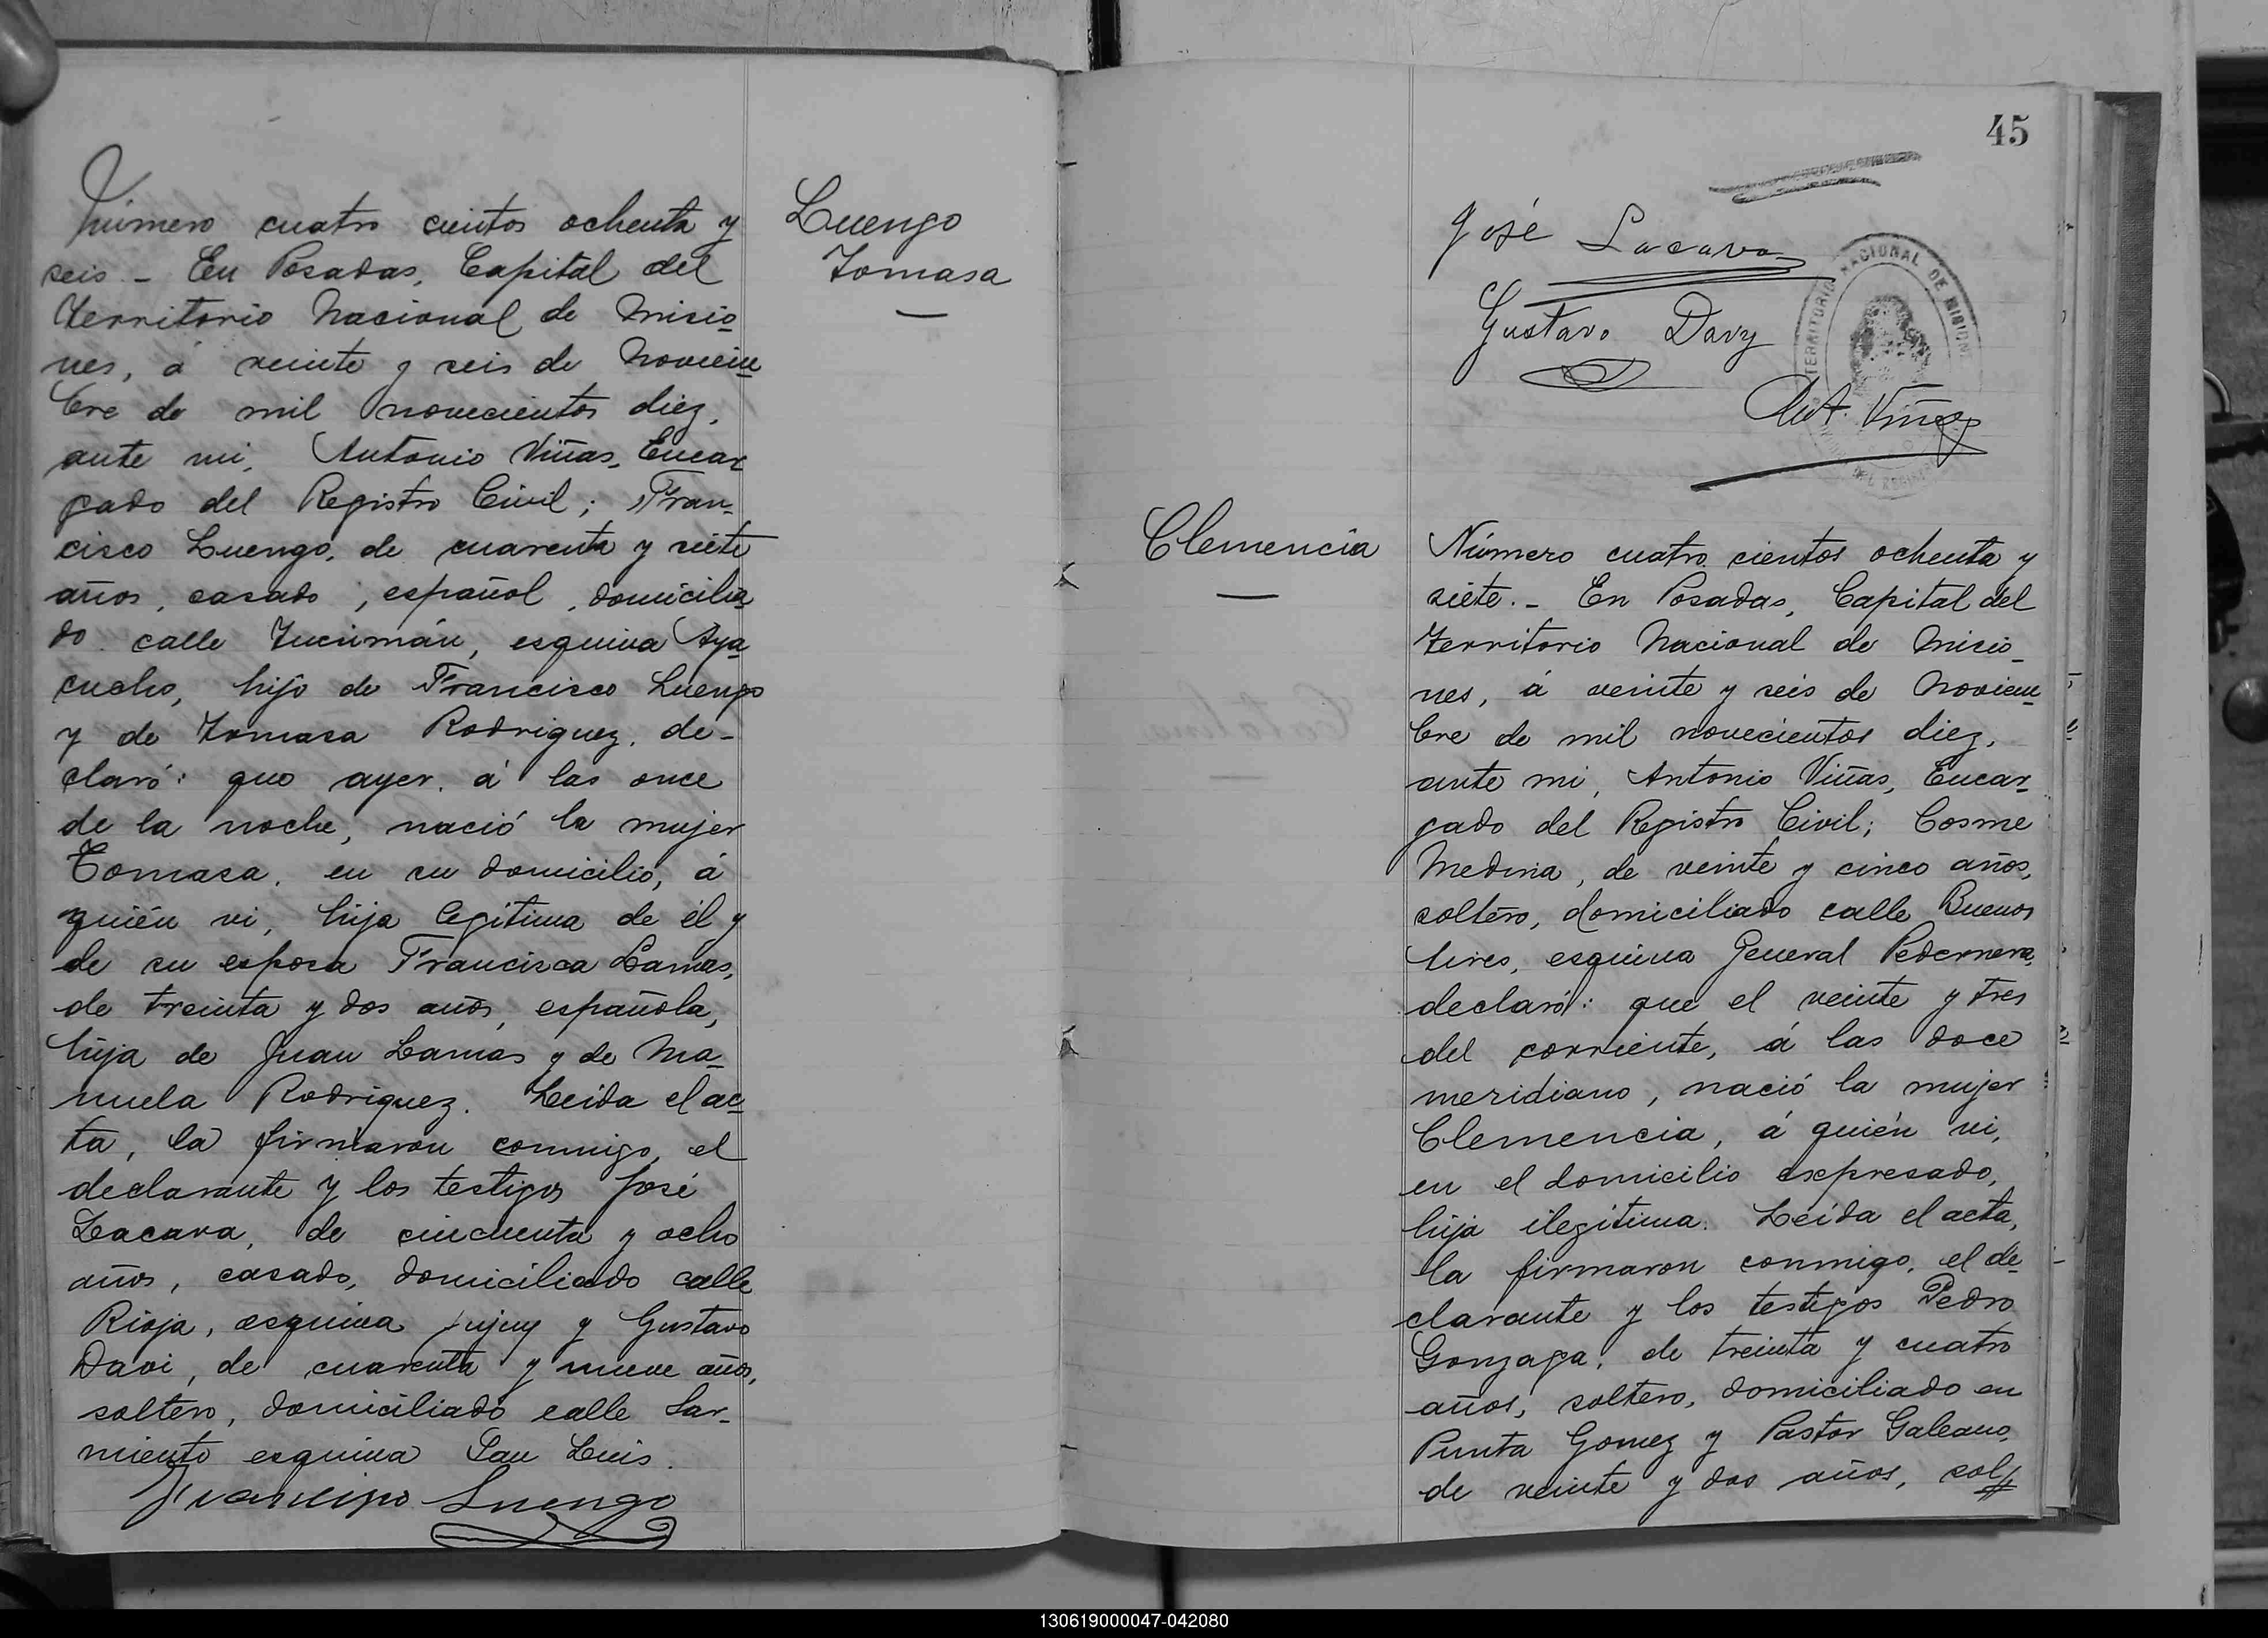 Número cuatro cientos ochenta y
seis - En Posadas, Capital del
Territorio Nacional de Misio-
nes, á veinte y seis de Noviem-
bre de mil novecientos diez,
ante mi, Antonio Viñas, Encar-
gado del Registro Civil; Fran-
cisco Luengo, de cuarenta y siete
años, casado, español, domicilia-
do calle Tucumán, esquina Aya-
cucho, hijo de Francisco Luengo
y de Tomasa Rodriguez, de-
claró: que ayer, á las once
de la noche, nació la mujer
Tomasa, en su domicilio, á
quién vi, hija legitima de él y
de su esposa Francisca Lamas,
de treinta y dos años, española,
hija de Juan Lamas y de Ma-
nuela Rodriguez. Leida el ac-
ta, la firmaron conmigo, el
declarante y los testigos José
Lacava, de cincuenta y ocho
años, casado, domiciliado calle
Rioja, esquina Jujuy y Gustavo
Davi, de cuarenta y nueve años,
soltero, domiciliado calle Sar-
miento esquina San Luis.
Francisco Luengo
Luengo
Tomasa
45
José Lacava
Gustavo Davy
Ant. Viñas
TERRITORIO NACIONAL DE MISION
Clemencia
Número cuatro cientos ochenta y
siete.- En Posadas, Capital del
Territorio Nacional de Misio-
nes, á veinte y seis de Noviem-
bre de mil novecientos diez,
ante mi, Antonio Viñas, Encar-
gado del Registro Civil; Cosme
Medina, de veinte y cinco años,
soltero, domiciliado calle Buenos
Aires, esquina General Pedernera,
declaró: que el veinte y tres
del corriente, á las doce
meridiano, nació la mujer
Clemencia, á quién vi,
en el domicilio expresado,
hija ilegítima. Leída el acta,
la firmaron conmigo, el de-
clarante y los testigos Pedro
Gonzaga, de treinta y cuatro
años, soltero, domiciliado en
Punta Gomez y Pastor Galeano,
de veinte y dos años, sol
130619000047-042080